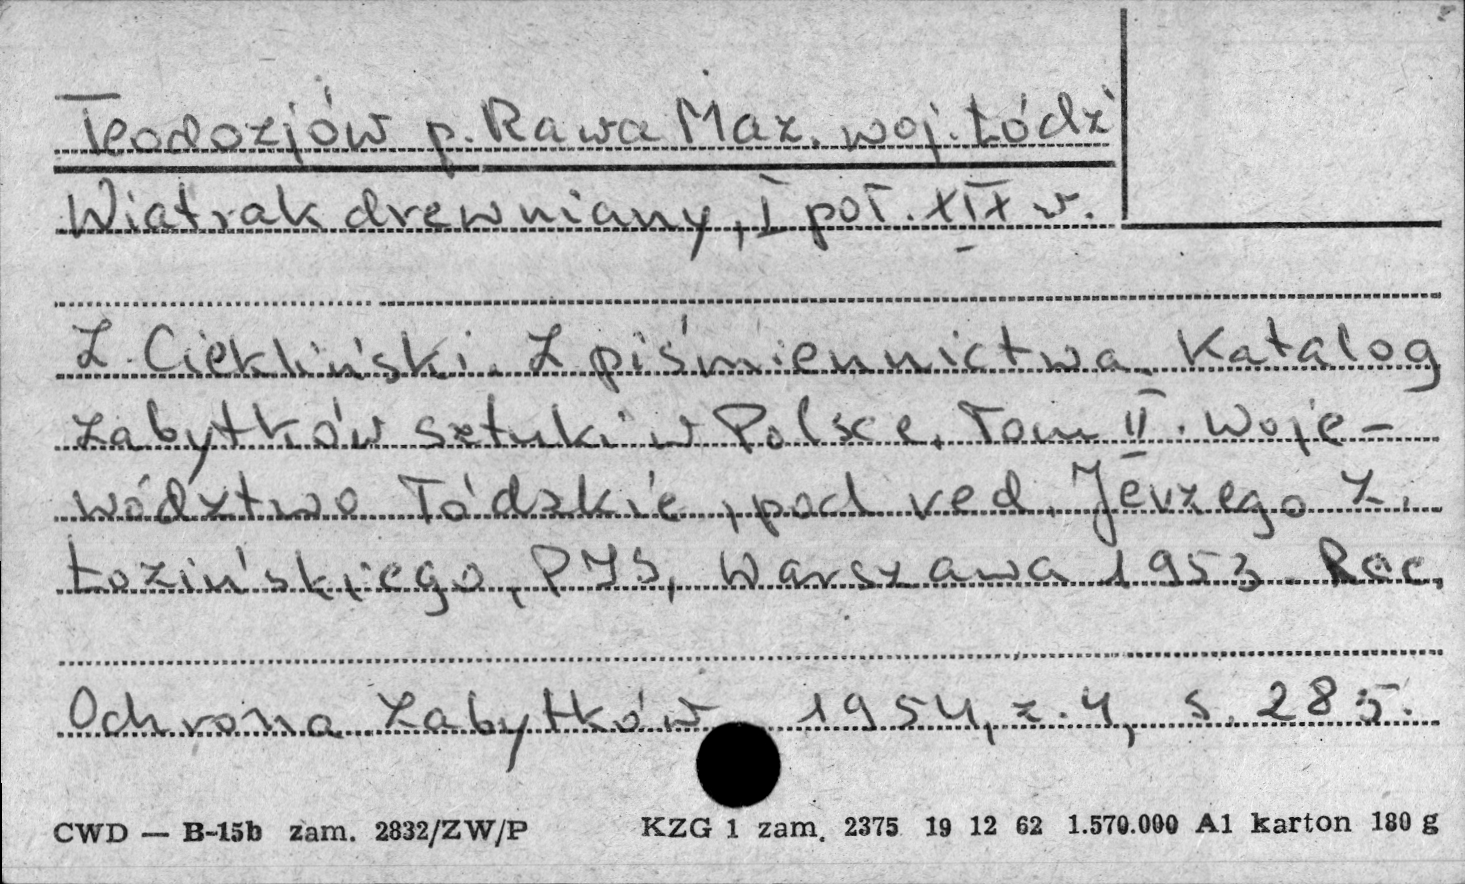 Teodozjów p. Rawa Maz. woj. Łódź
Wiatrak drewniany, I poł. XIX w.
Z. Ciekliński. Z piśmiennictwa. Katalog
zabytków sztuki w Polsce. Tom II. Woje-
wództwo łódzkie, pod red. Jerzego Z.
Łozińskiego, PIS, Warszawa 1953. Rec.
Ochrona Zabytków 1954, z. 4, s. 285.
CWD — B-15b zam. 2832/ZW/P KZG 1 zam. 2375 19 12 62 1.570.000 A1 karton 180 g